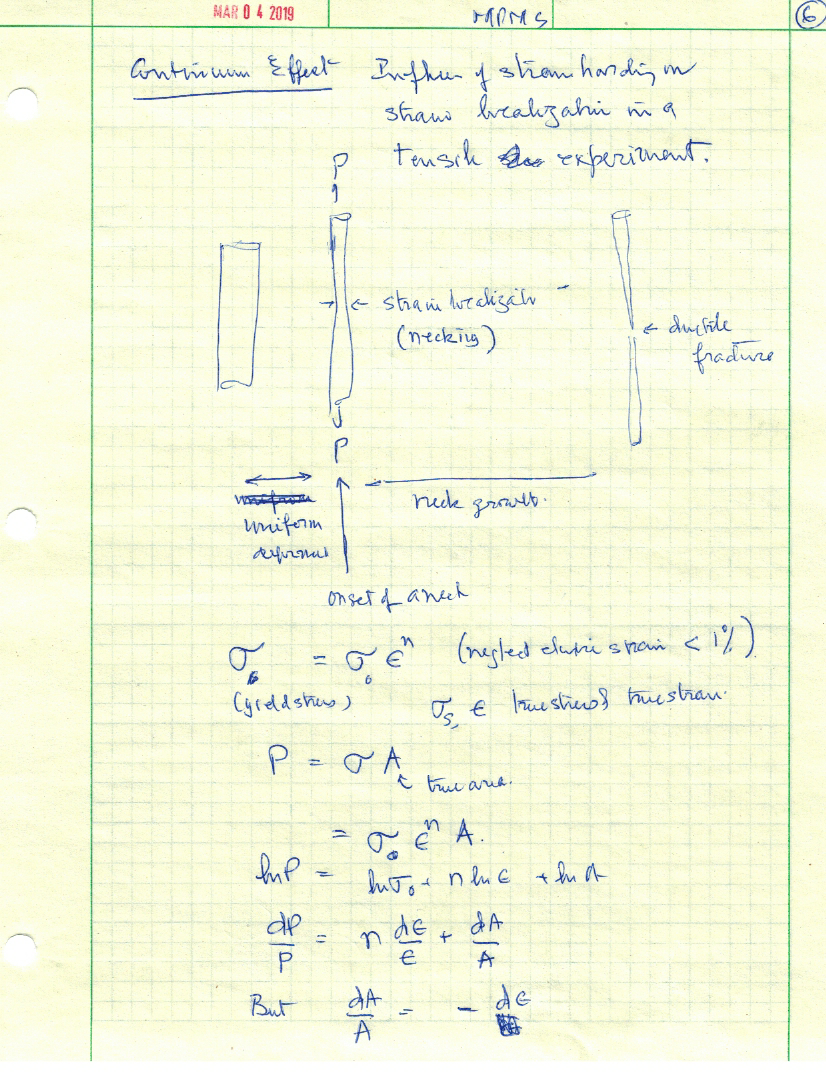 MAR 0 4 2019
MPMS
6
Continuum Effect Influen of strain harding on
strain localization in a
tensile experiment.
P
← strain localizatn
(necking)
← ductile
fracture
P
neck growth.
uniform
deformat
onset of a neck
σ = σ₀ ϵⁿ (neglect elastic strain < 1%)
(yield stress) σₛ, ϵ true stress & true strain.
P = σ A
true area.
= σ₀ ϵⁿ A.
ln P = ln σ₀ + n ln ϵ + ln A
dP/P = n dϵ/ϵ + dA/A
But dA/A = - dϵ